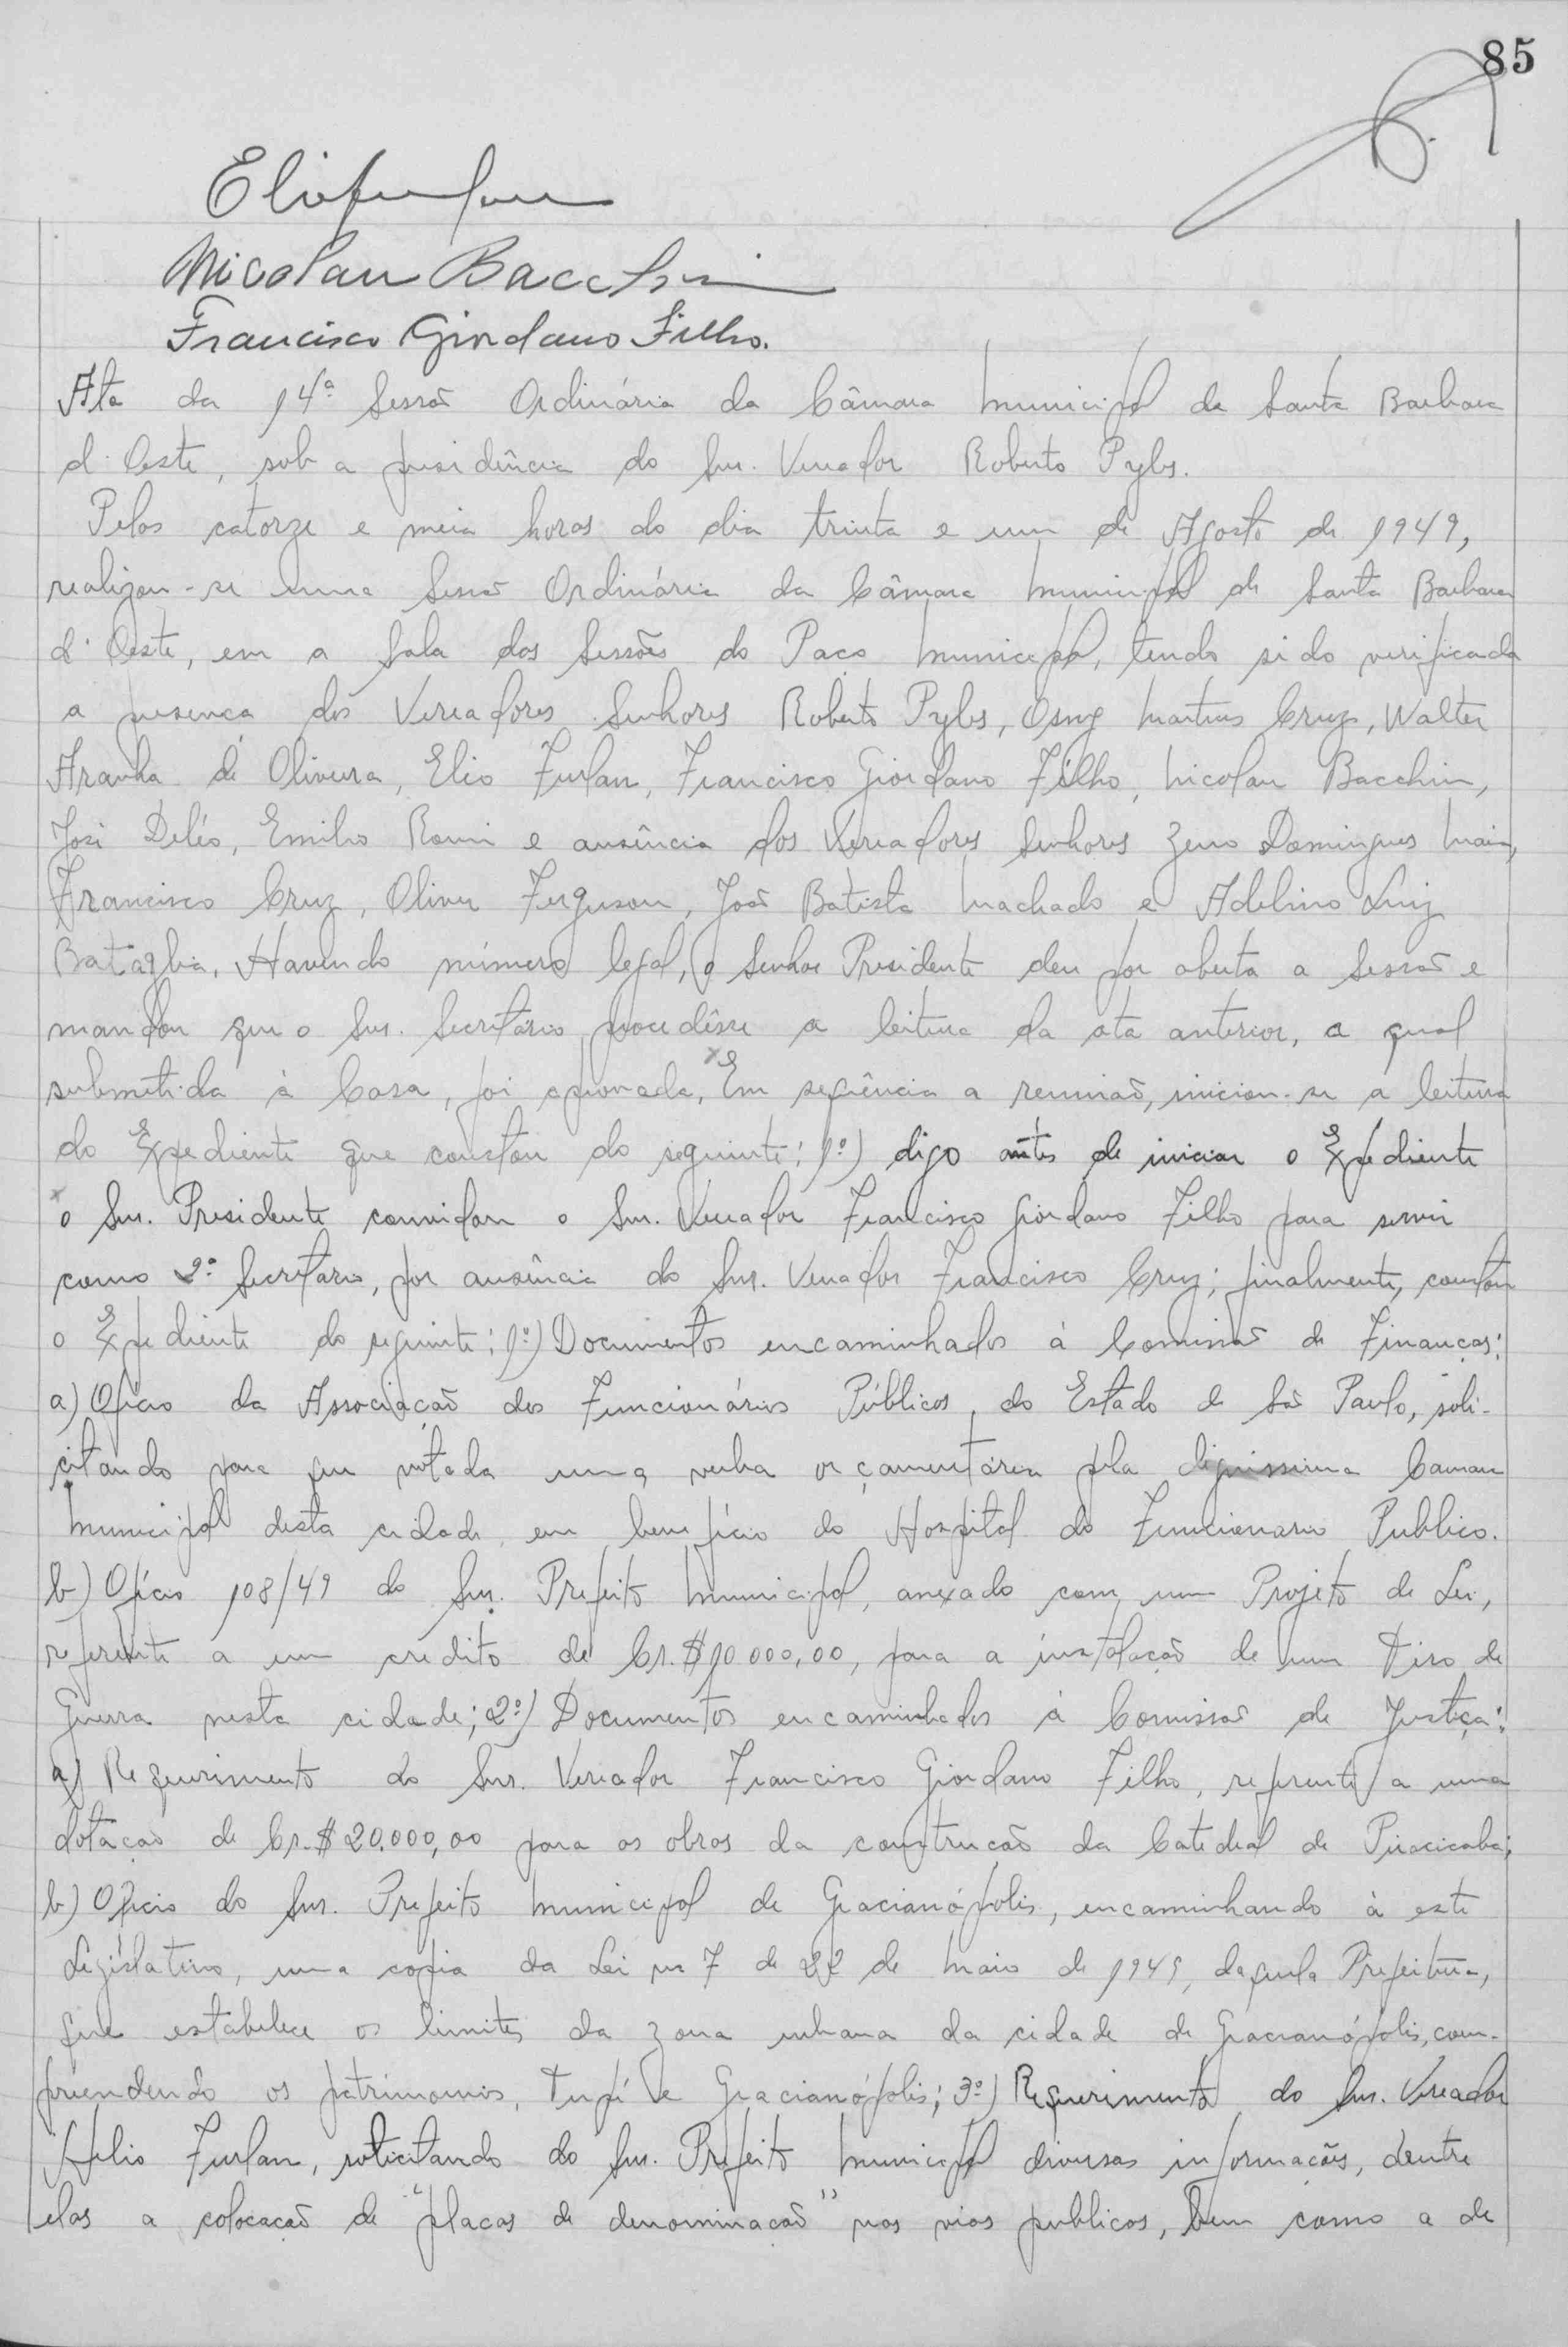 85
Elio Furlan
Nicolau Bacchin
Francisco Giordano Filho.
Ata da 14ª Sessão Ordinária da Câmara Municipal de Santa Barbara
d'Oeste, sob a presidência do Snr. Vereador Roberto Pyles.
Pelas catorze e meia horas do dia trinta e um de Agosto de 1949,
realizou-se uma Sessão Ordinária da Câmara Municipal de Santa Barbara
d'Oeste, em a Sala das Sessões do Paço Municipal, tendo sido verificada
a presença dos Vereadores Senhores Roberto Pyles, Osny Martins Cruz, Walter
Aranha de Oliveira, Elio Furlan, Francisco Giordano Filho, Nicolau Bacchin,
José Deléo, Emilio Romi e ausência dos Vereadores Senhores Zeno Domingues Maia,
Francisco Cruz, Oliver Ferguson, João Batista Machado e Adelino Luiz
Bataglia. Havendo número legal, o Senhor Presidente deu por aberta a Sessão e
mandou que o Snr. Secretário procedêsse a leitura da ata anterior, a qual
submetida à Casa, foi aprovada. Em seqüência a reunião, iniciou-se a leitura
do Expediente que constou do seguinte: 1º) digo antes de iniciar o Expediente
o Snr. Presidente convidou o Snr. Vereador Francisco Giordano Filho para servir
como 2º Secretário, por ausência do Snr. Vereador Francisco Cruz; finalmente, constou
o Expediente do seguinte: 1º) Documentos encaminhados à Comissão de Finanças:
a) Ofício da Associação dos Funcionários Públicos do Estado de São Paulo, soli-
citando para que votada uma verba orçamentárea pela digníssima Camara
Municipal desta cidade em benefício do Hospital do Funcionario Publico.
b) Ofício 108/49 do Snr. Prefeito Municipal, anexado com um Projeto de Lei,
referente a um credito de Cr.$10.000,00, para a instalação de um Tiro de
Guerra nesta cidade; 2º) Documentos encaminhados à Comissão de Justiça:
a) Requerimento do Snr. Vereador Francisco Giordano Filho, referente a uma
dotação de Cr.$20.000,00 para as obras da construção da Catedral de Piracicaba;
b) Ofício do Snr. Prefeito Municipal de Gracianópolis, encaminhando à este
Legislativo, uma copia da Lei nº 7 de 22 de Maio de 1949, daquela Prefeitura,
que estabelece os limites da zona urbana da cidade de Gracianópolis, com-
preendendo os patrimonios, Tupí e Gracianópolis; 3º) Requerimento do Snr. Vereador
Helio Furlan, solicitando do Snr. Prefeito Municipal diversas informações, dentre
elas a colocação de "placas de denominação" nas vias publicas, bem como a de